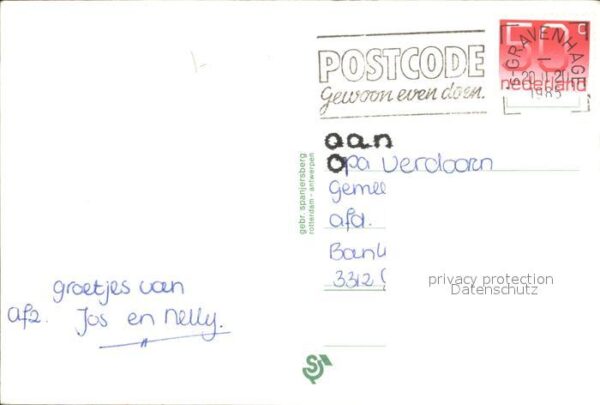 POSTCODE
Gewoon even doen.
'S GRAVENHAGE
1985
50 c
nederland
aan
opa Verdoorn
gemee
afd.
Bank
3312
gebr. spanjersberg
rotterdam - antwerpen
privacy protection
Datenschutz
groetjes van
afz. Jos en Nelly.